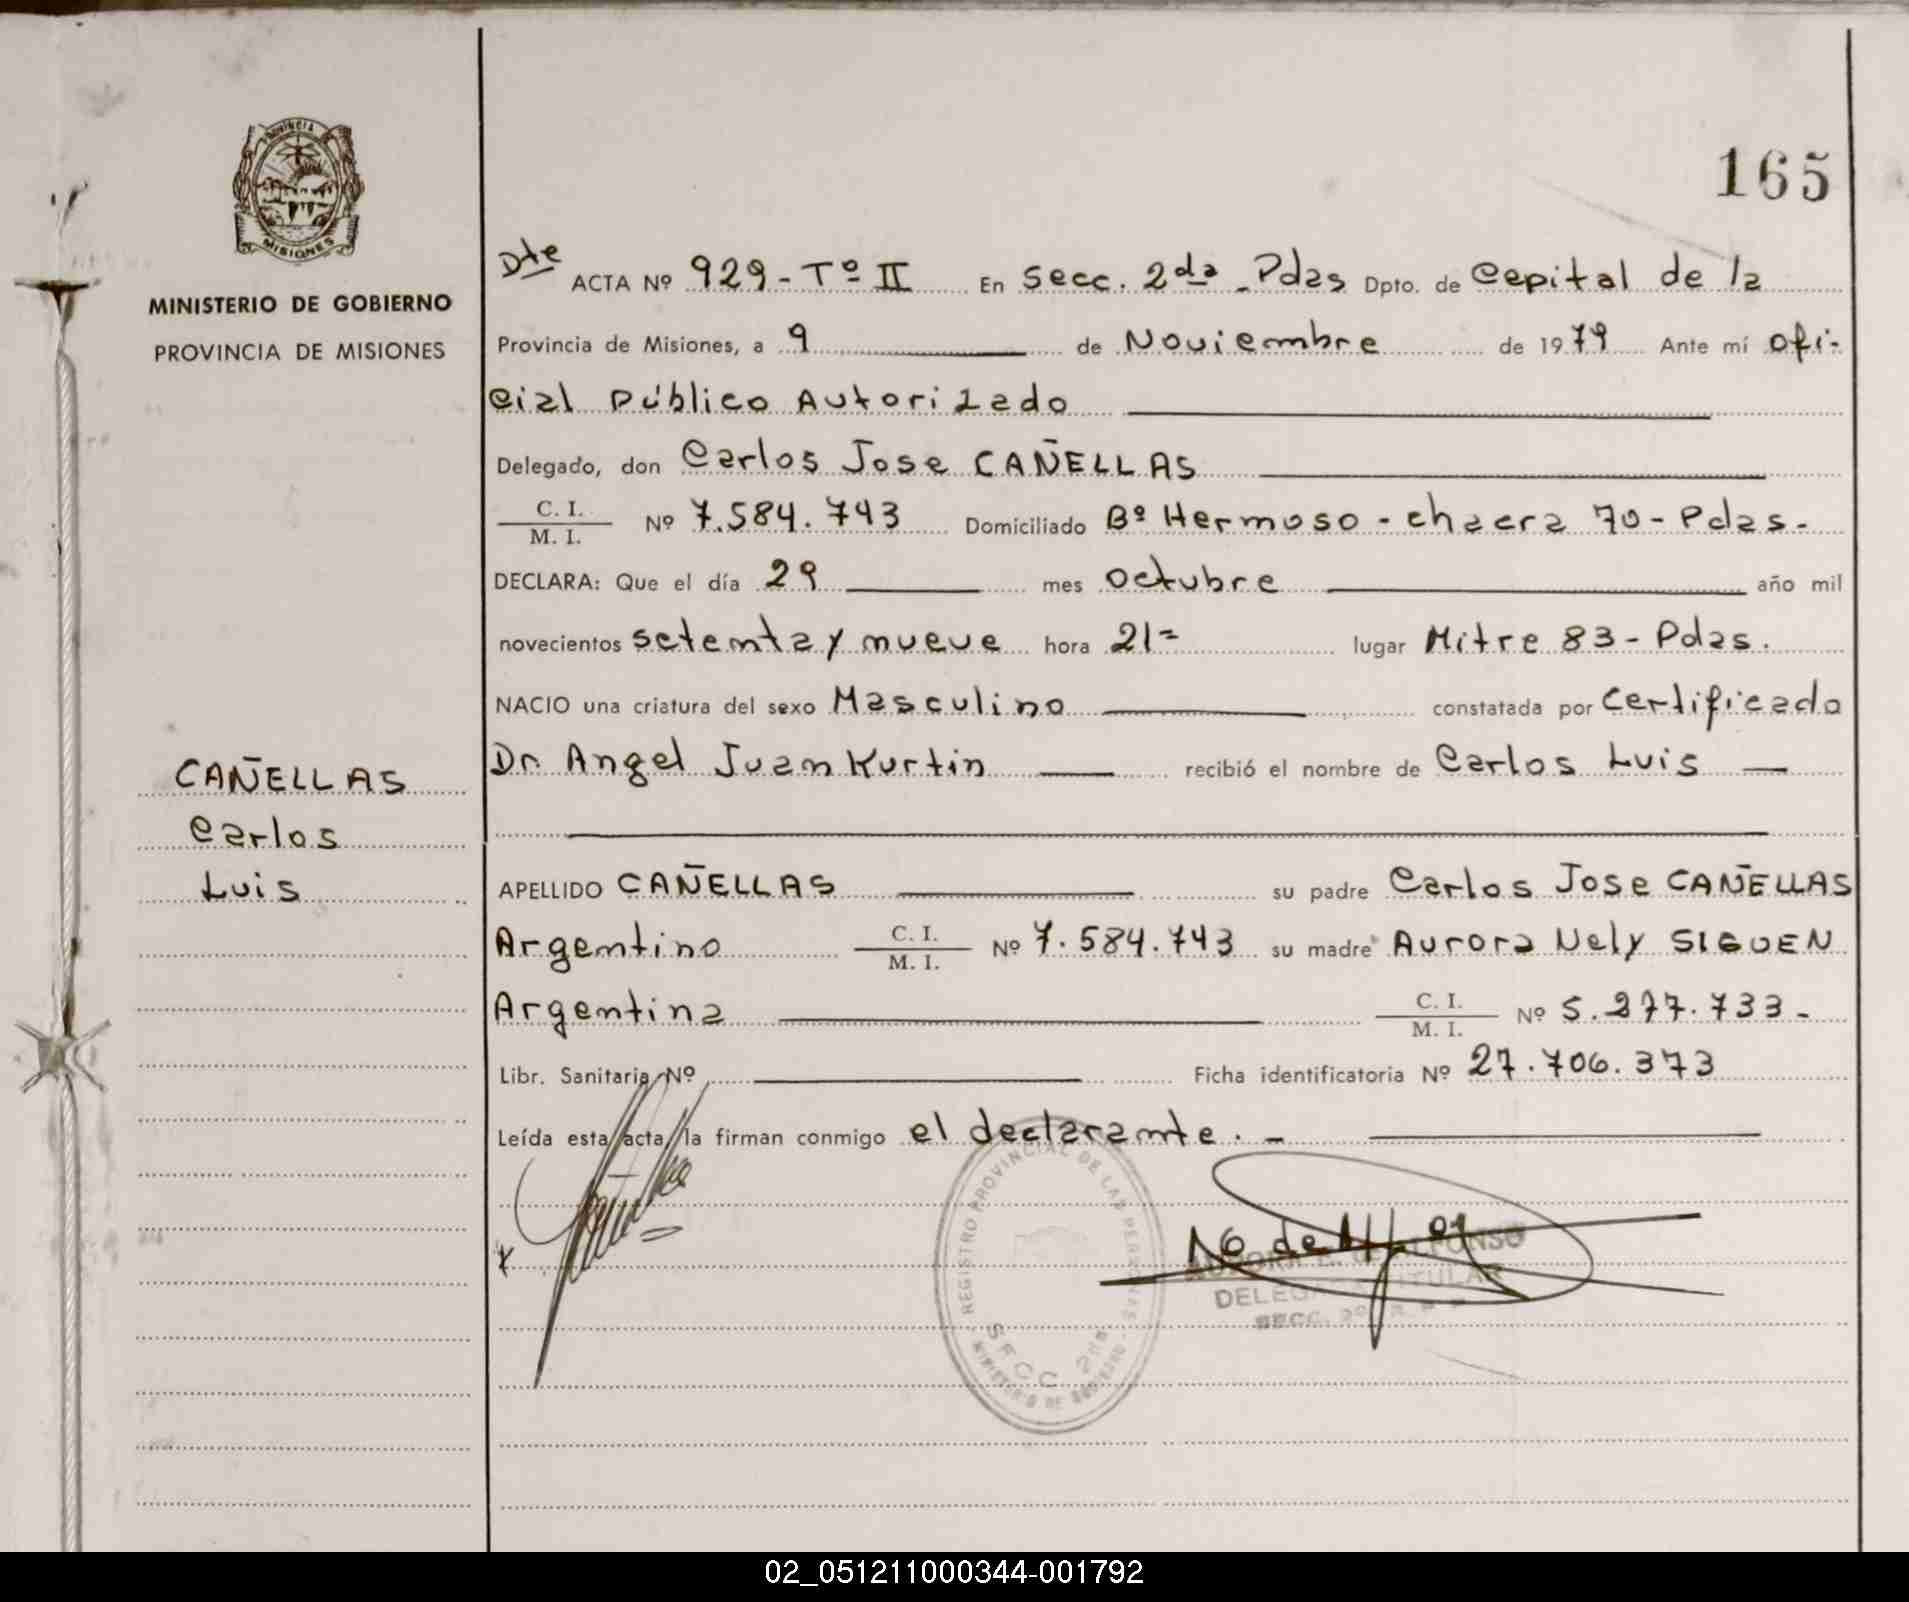 165
PROVINCIA
MISIONES
MINISTERIO DE GOBIERNO
PROVINCIA DE MISIONES
CAÑELLAS
Carlos
Luis
Dte ACTA Nº 929 - Tº II En Secc. 2da - Pdas Dpto. de Capital de la
Provincia de Misiones, a 9 de Noviembre de 1979 Ante mí ofi-
cial Público Autorizado
Delegado, don Carlos Jose CAÑELLAS
C. I.
M. I. Nº 7.584.743 Domiciliado Bº Hermoso - chacra 70 - Pdas.
DECLARA: Que el día 29 mes octubre año mil
novecientos setenta y nueve hora 21= lugar Mitre 83 - Pdas.
NACIO una criatura del sexo Masculino constatada por Certificado
Dr. Angel Juan Kurtin recibió el nombre de Carlos Luis
APELLIDO CAÑELLAS su padre Carlos Jose CAÑELLAS
Argentino C. I. M. I. Nº 7.584.743 su madre Aurora Nely SIGUEN
Argentina C. I. M. I. Nº 5.277.733 -
Libr. Sanitaria Nº Ficha identificatoria Nº 27.706.373
Leída esta acta, la firman conmigo el declarante. -
REGISTRO PROVINCIAL DE LAS PERSONAS
SECC 2da
MINISTERIO DE GOBIERNO
ALFONSO
DELEGADA TITULAR
SECC. 2º
02_051211000344-001792